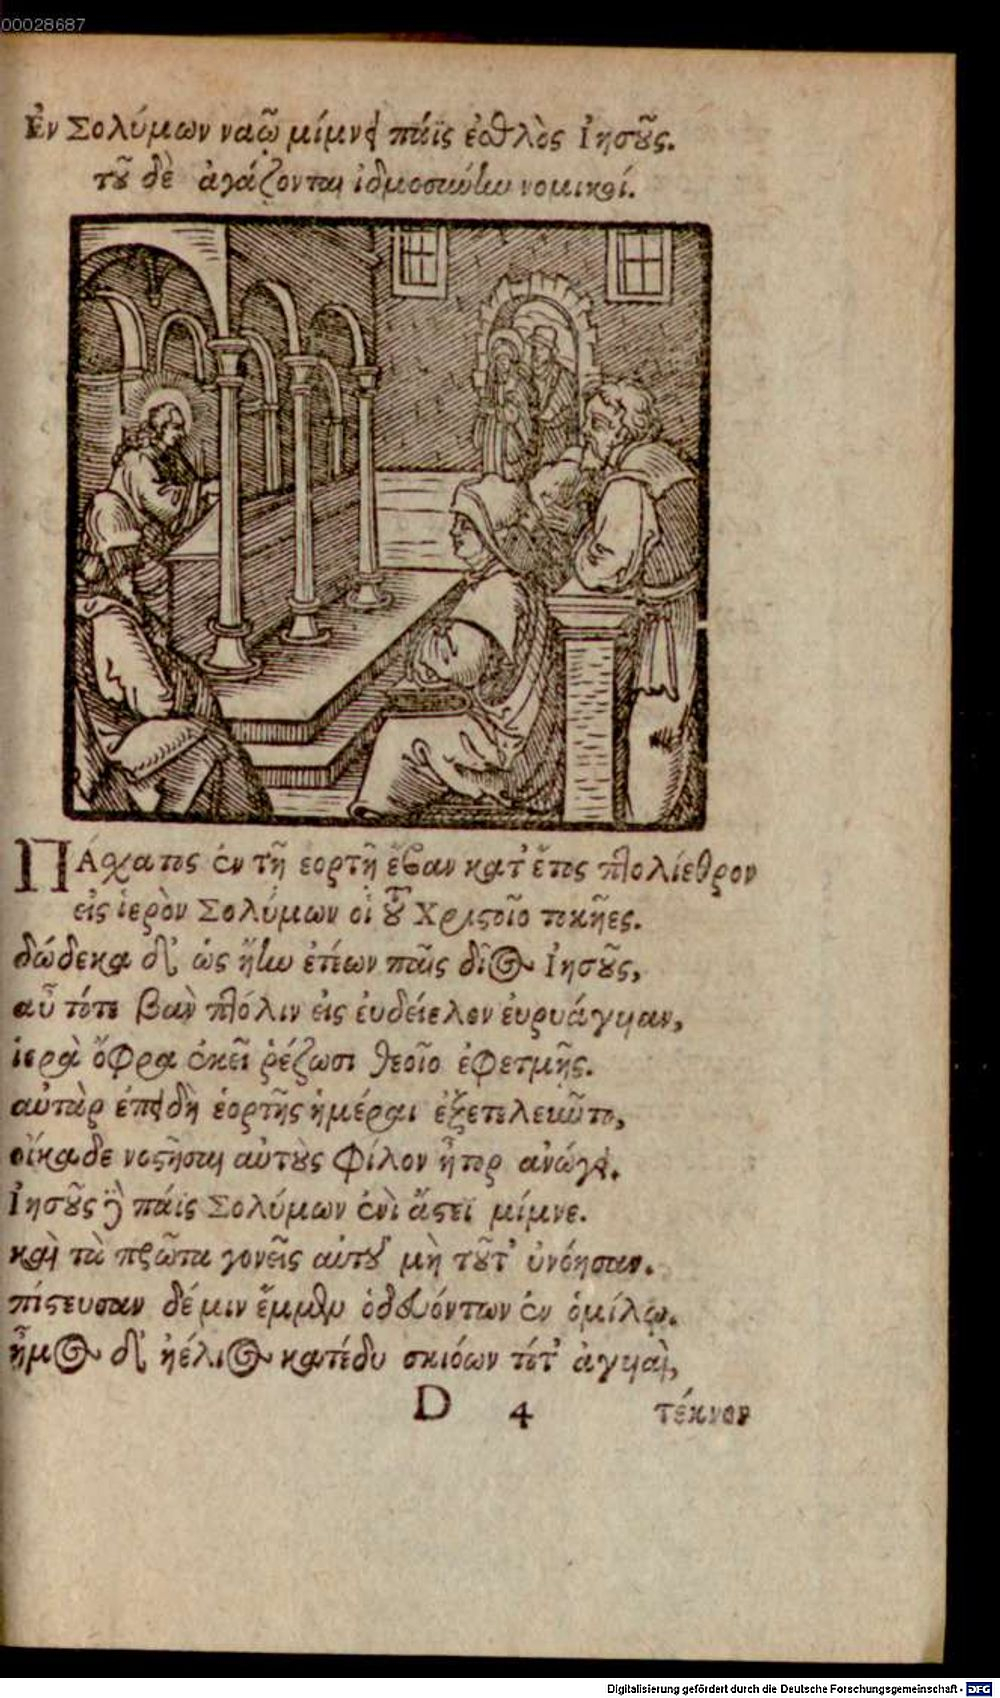 00028687
Ἐν Σολύμων ναῷ μίμνει πάϊς ἐσθλὸς Ἰησοῦς.
τοῦ δὲ ἀγάζονται ἰδμοσύνην νομικοί.
ΠΆσχατος ἐν τῇ ἑορτῇ ἔβαν κατ᾽ ἔτος πτολίεθρον
εἰς ἱερὸν Σολύμων οἱ τοῦ Χριστοῖο τοκῆες.
δώδεκα δ᾽ ὡς ἤην ἐτέων παῖς δῖος Ἰησοῦς,
αὖ τότε βὰν πτόλιν εἰς εὐδείελον εὐρυάγυιαν,
ἱερὰ ὄφρα ἐκεῖ ῥέζωσι θεοῖο ἐφετμῆς.
αὐτὰρ ἐπειδὴ ἑορτῆς ἡμέραι ἐξετελεῦντο,
οἴκαδε νοστῆσαι αὐτοὺς φίλον ἦτορ ἀνώγει.
Ἰησοῦς δὲ πάϊς Σολύμων ἐνὶ ἄστεϊ μίμνε.
καὶ τὰ πρῶτα γονεῖς αὐτοῦ μὴ τοῦτ᾽ ἐνόησαν.
πίστευσαν δέ μιν ἔμμεναι ὁδευόντων ἐν ὁμίλῳ.
ἦμος δ᾽ ἠέλιος κατέδυ σκιόων τότ᾽ ἀγυιαὶ,
D 4 τέκνον
Digitalisierung gefördert durch die Deutsche Forschungsgemeinschaft - DFG